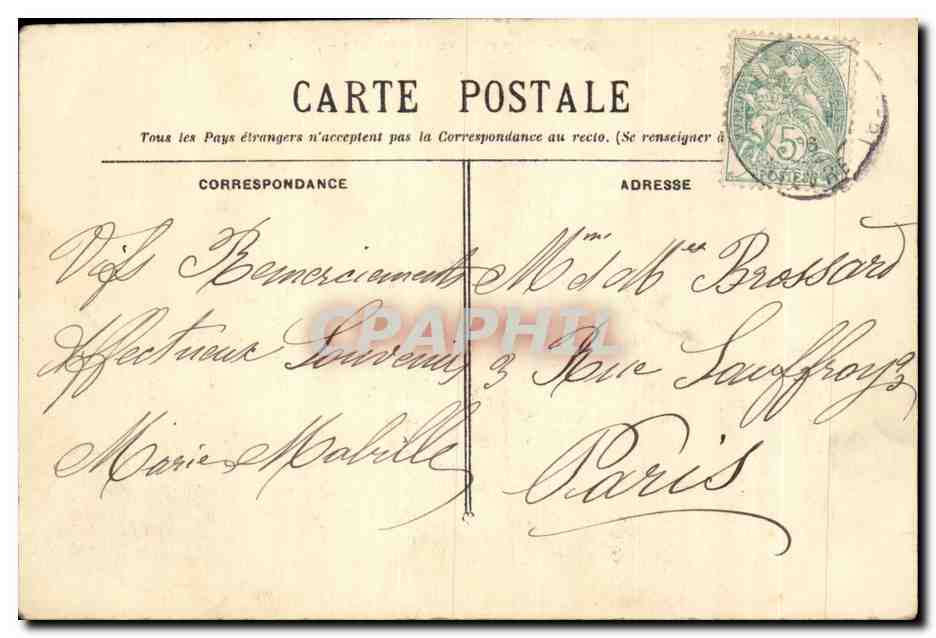 CARTE POSTALE
Tous les Pays étrangers n'acceptent pas la Correspondance au recto. (Se renseigner à
CORRESPONDANCE
ADRESSE
Vifs Remerciements
Affectueux Souvenirs
Marie Mabille
Mme et Mr Brossard
3 Rue Sauffroy
Paris
5
POSTES
CPAPHIL